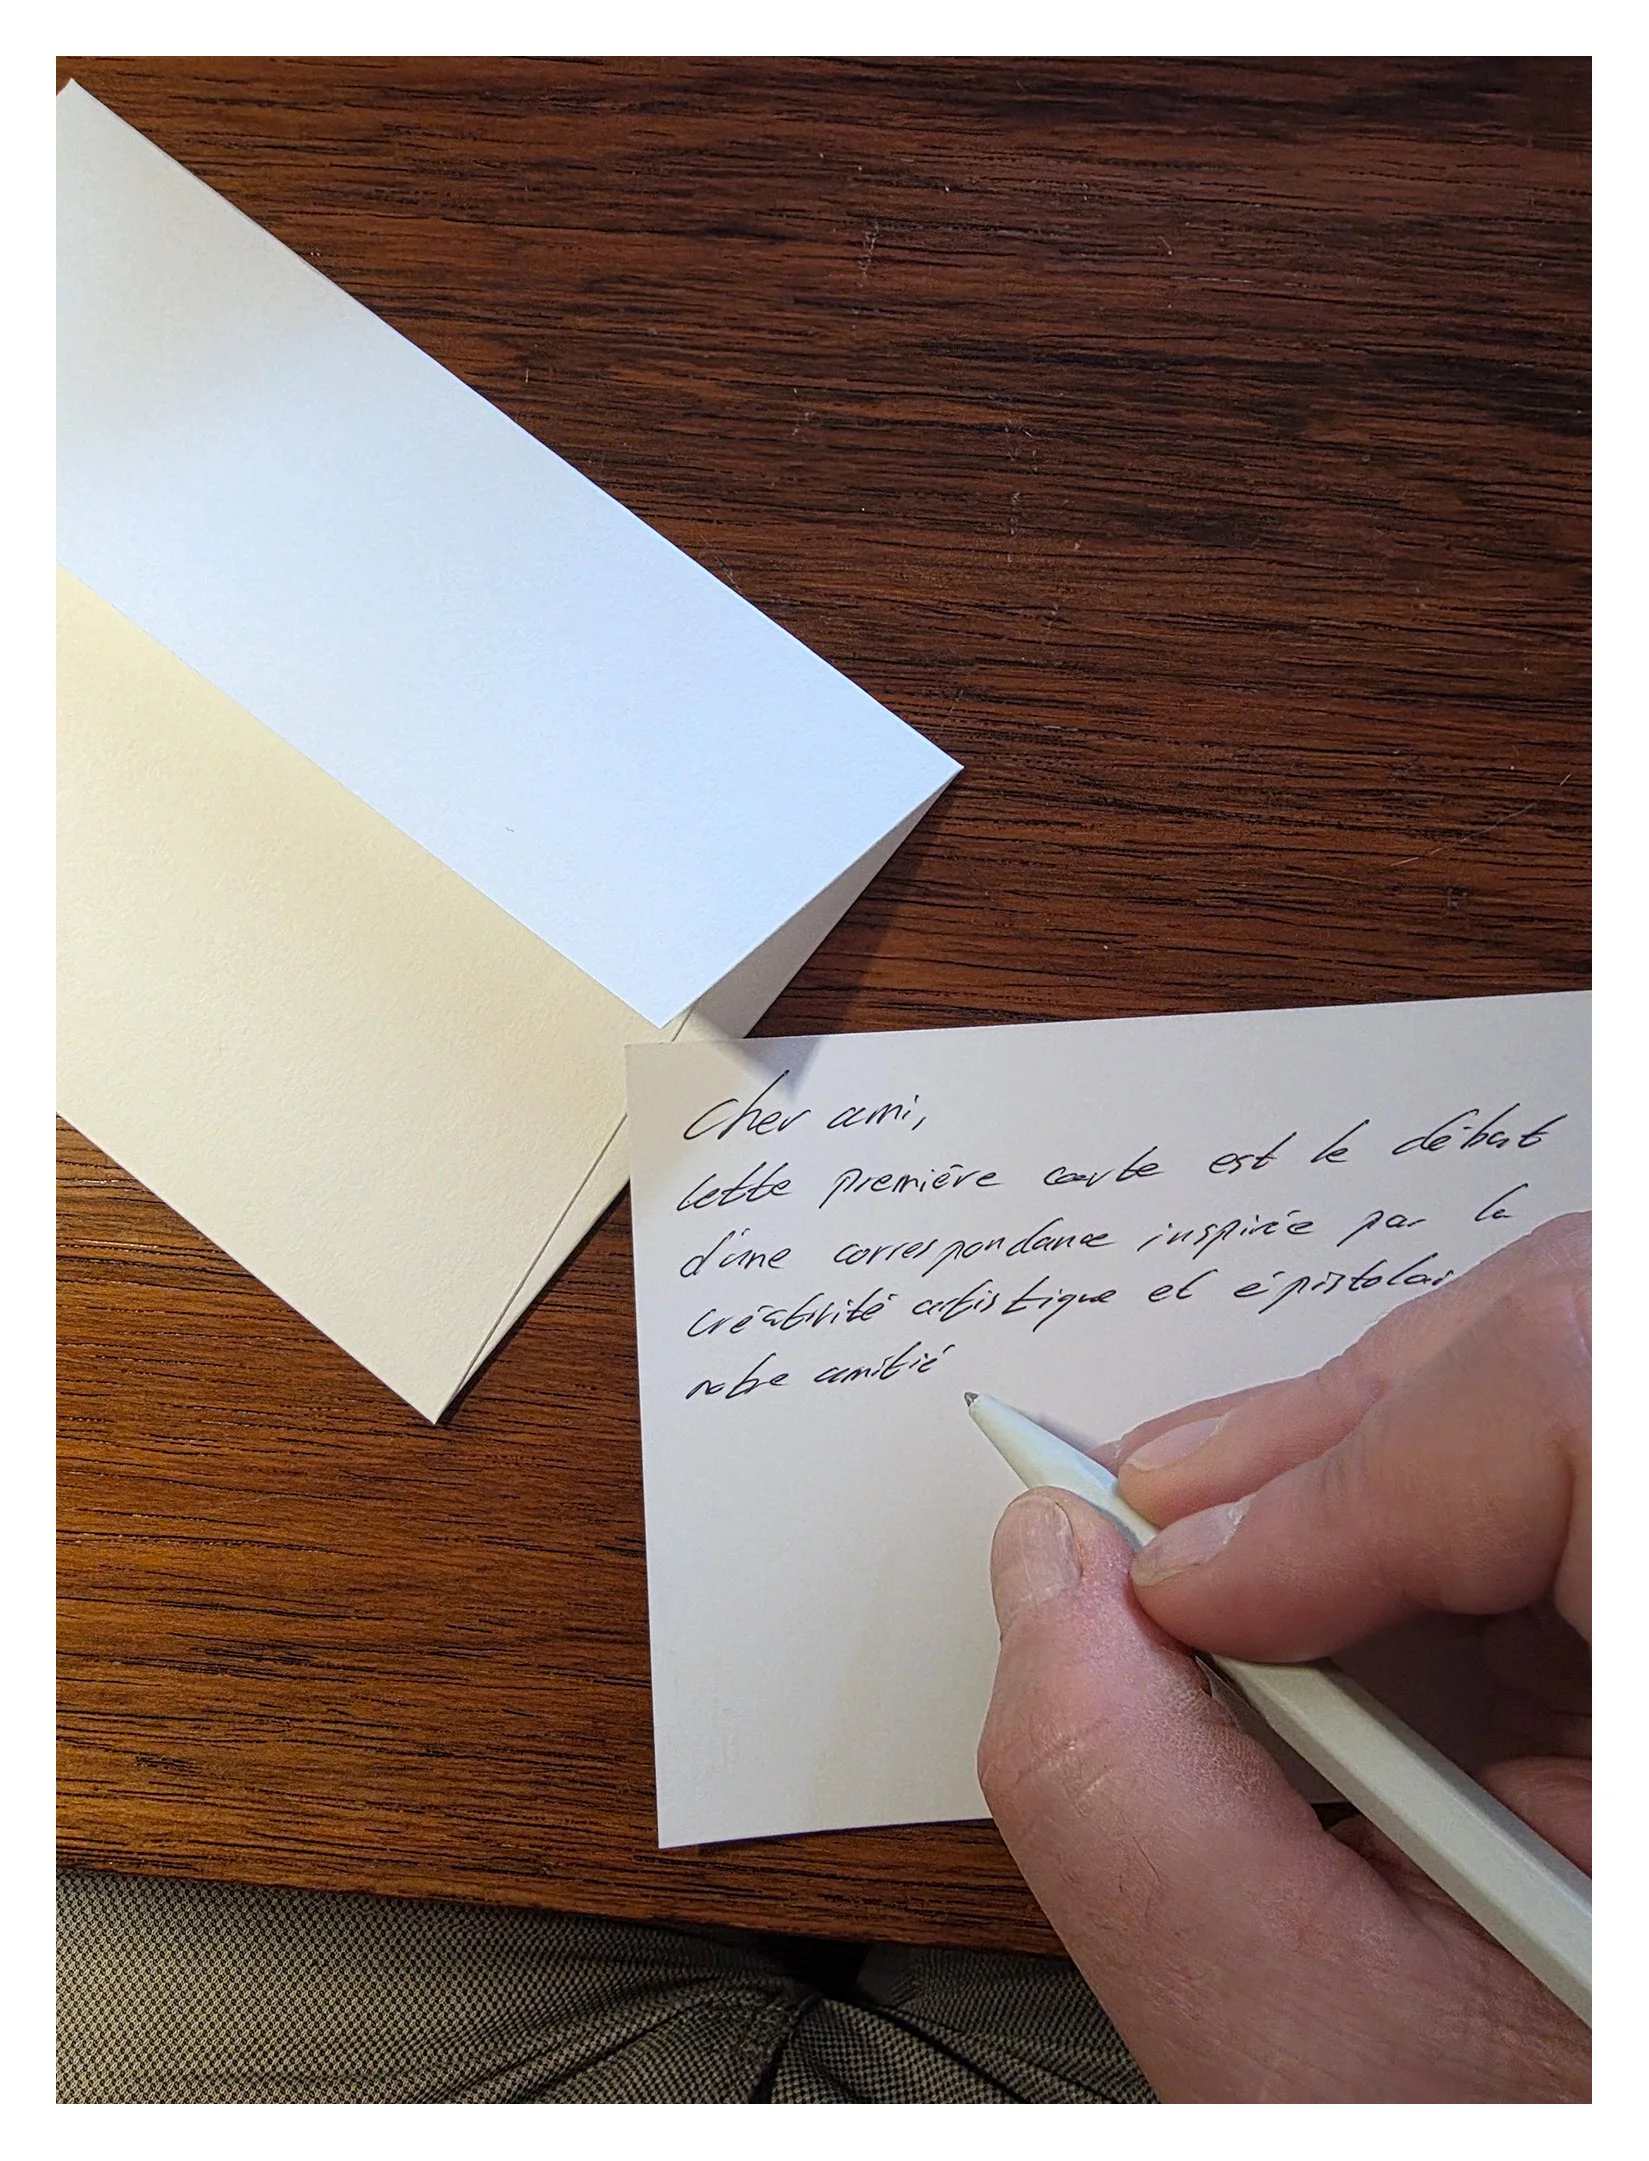 Cher ami,
Cette première carte est le début
d'une correspondance inspirée par la
créativité artistique et épistolai
notre amitié